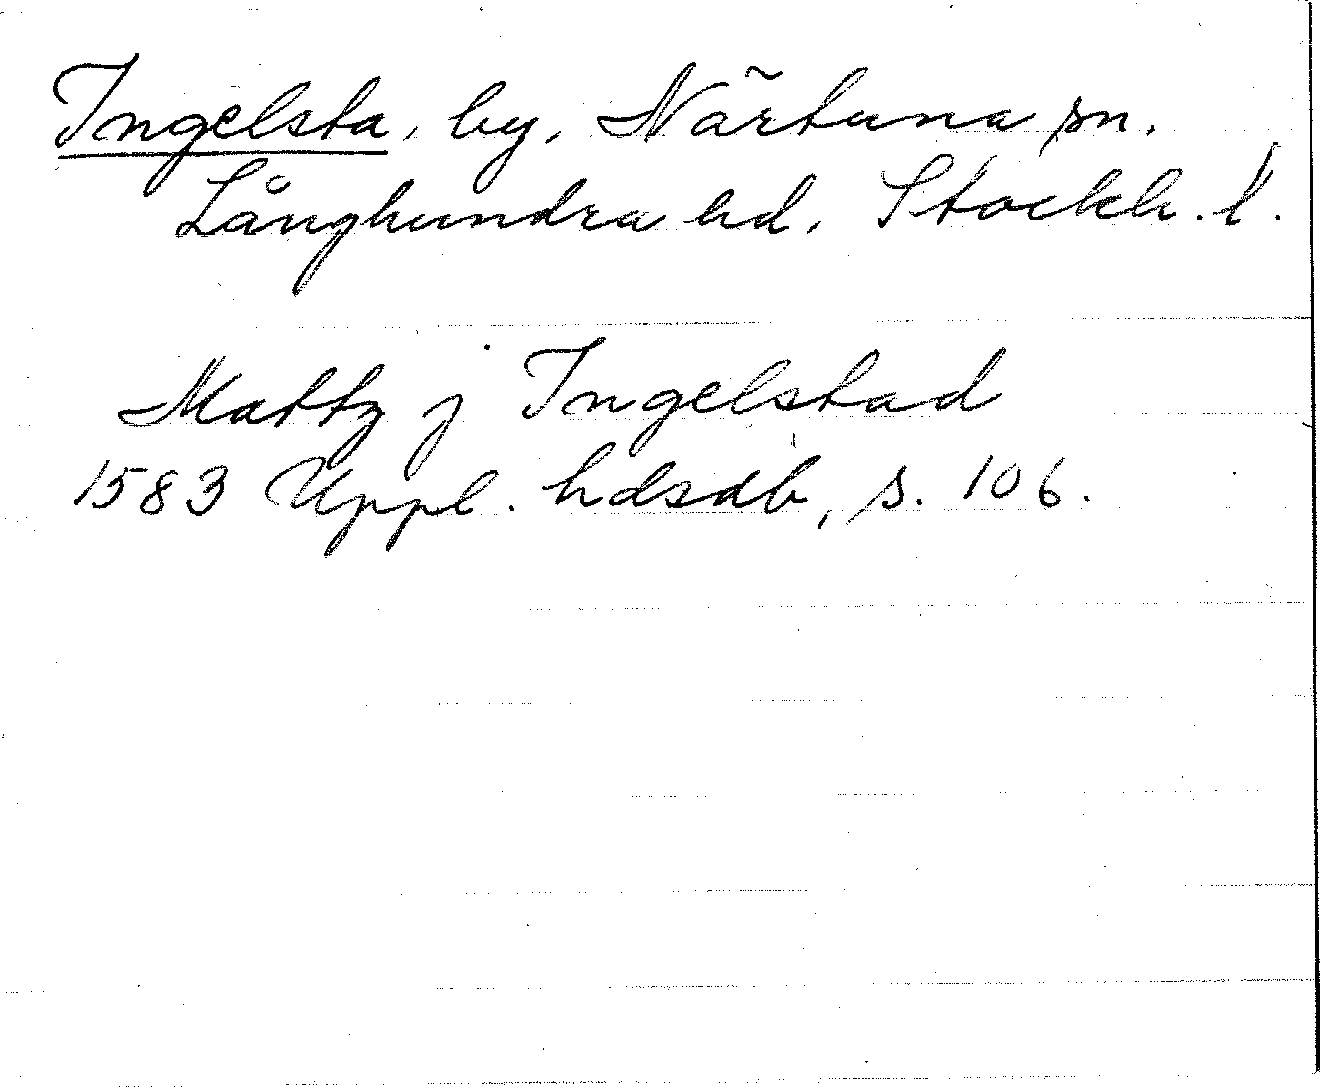 Ingelsta, by, Närtuna sn.
Långhundra hd, Stockh. l.
Mattz j Ingelstad
1583 Uppl. hdsdb, s. 106.